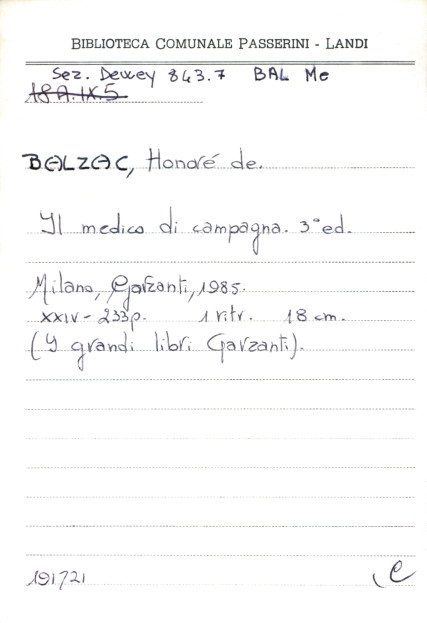 BIBLIOTECA COMUNALE PASSERINI - LANDI
Sez. Dewey 843.7 BAL Me
18A.IX.5
BALZAC, Honoré de.
Il medico di campagna. 3° ed.
Milano, Garzanti, 1985.
XXIV - 233 p. 1 ritr. 18 cm.
(I grandi libri Garzanti).
191721